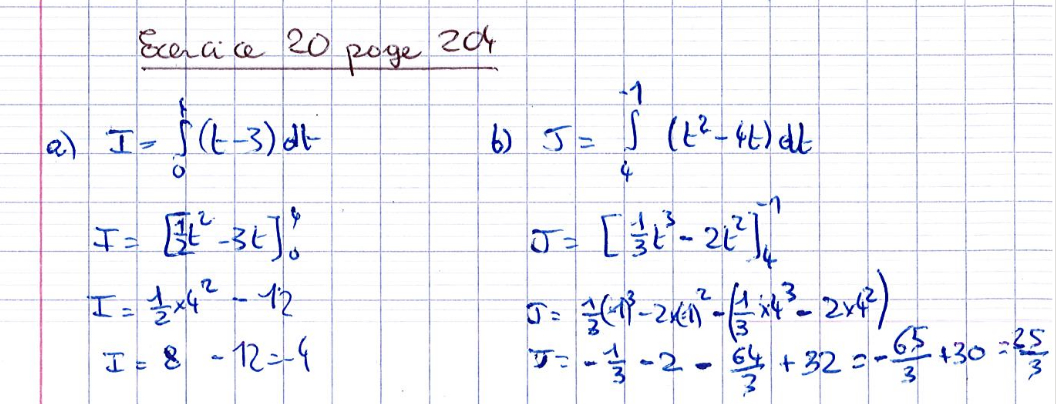 Exercice 20 page 204
a) I = ∫₀⁴ (t-3) dt
I = [1/2 t² - 3t]₀⁴
I = 1/2 × 4² - 12
I = 8 - 12 = -4
b) J = ∫₄⁻¹ (t² - 4t) dt
J = [1/3 t³ - 2t²]₄⁻¹
J = 1/3 (-1)³ - 2×(-1)² - (1/3 × 4³ - 2×4²)
J = - 1/3 - 2 - 64/3 + 32 = - 65/3 + 30 = 25/3